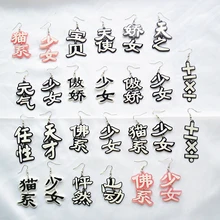 猫系 少女 宝贝 天使 娇女 天之
元气 少女 傲娇 少女 傲娇 少女
任性 天才 佛系 少女 佛系 少女
猫系 少女 怦然 心动 佛系 少女